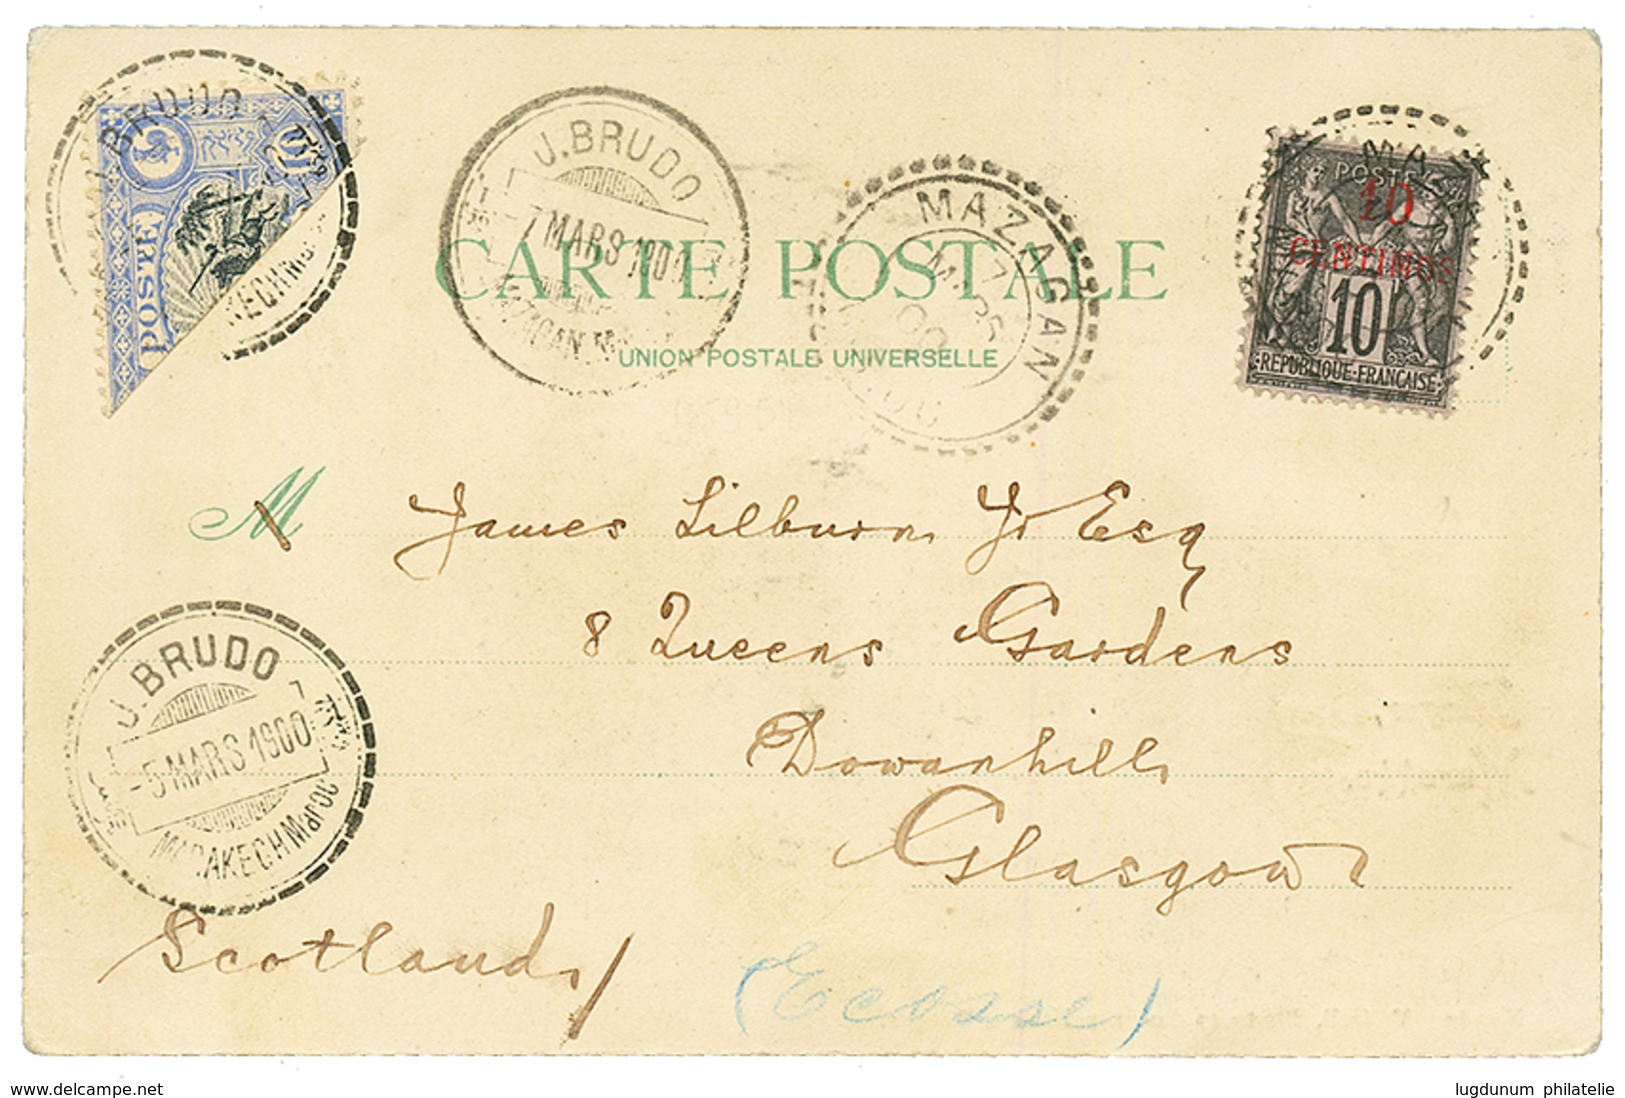 J. BRUDO
POSTE
10
J. BRUDO
7 MARS 1900
MAZAGAN
MAZAGAN
7
MARS
00
POSTES
10
CENTIMOS
10
REPUBLIQUE-FRANÇAISE
CARTE POSTALE
UNION POSTALE UNIVERSELLE
M James Lilburn Jr Esq
8 Queens Gardens
Dowanhill
Glasgow
Scotland
(Ecosse)
J. BRUDO
-5 MARS 1900
MARAKECH Maroc
www.delcampe.net
lugdunum philatelie